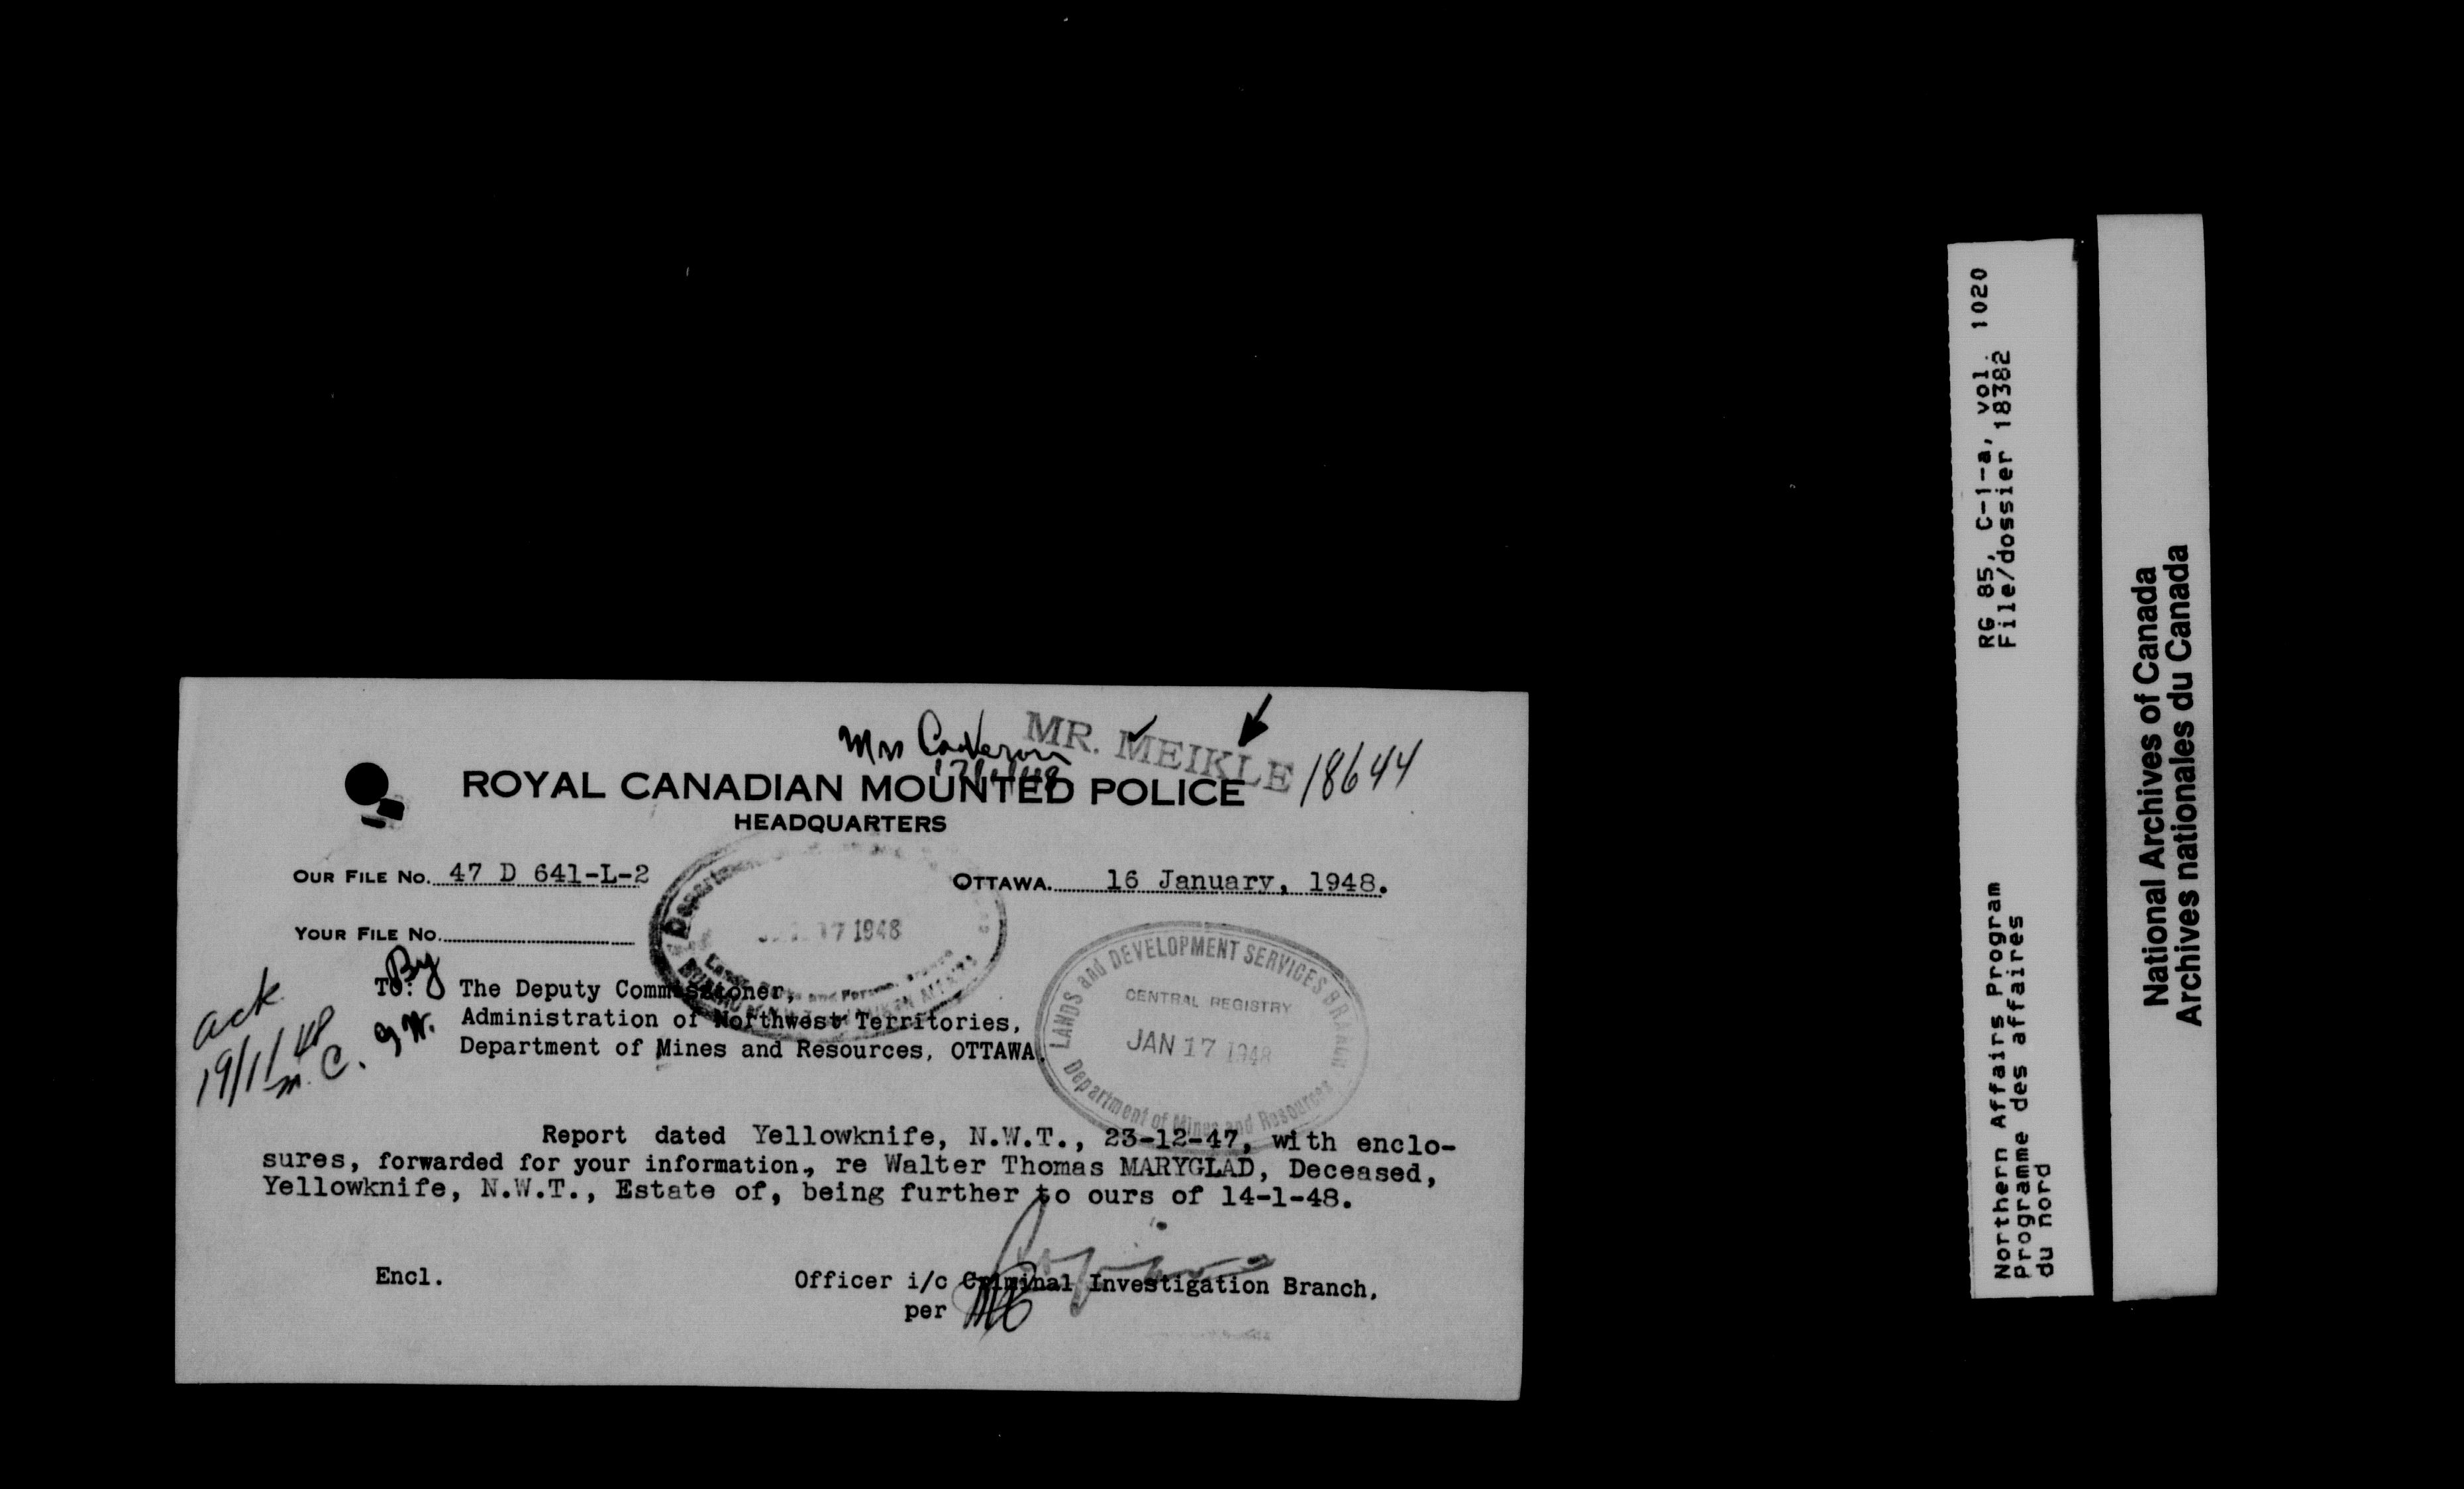 Mrs Cameron
MR. MEIKLE
18644
ROYAL CANADIAN MOUNTED POLICE
HEADQUARTERS
OUR FILE NO. 47 D 641-L-2
OTTAWA. 16 January, 1948.
YOUR FILE NO.
17 1948
LANDS and DEVELOPMENT SERVICES BRANCH
CENTRAL REGISTRY
JAN 17 1948
Department of Mines and Resources
By
TO: The Deputy Commissioner,
Administration of Northwest Territories,
Department of Mines and Resources, OTTAWA.
ack
19/1/48
m. C.
Report dated Yellowknife, N.W.T., 23-12-47, with enclo-
sures, forwarded for your information, re Walter Thomas MARYGLAD, Deceased,
Yellowknife, N.W.T., Estate of, being further to ours of 14-1-48.
Encl.
Officer i/c Criminal Investigation Branch,
per
RG 85, C-1-a, vol. 1020
File/dossier 18382
Northern Affairs Program
Programme des affaires
du nord
National Archives of Canada
Archives nationales du Canada